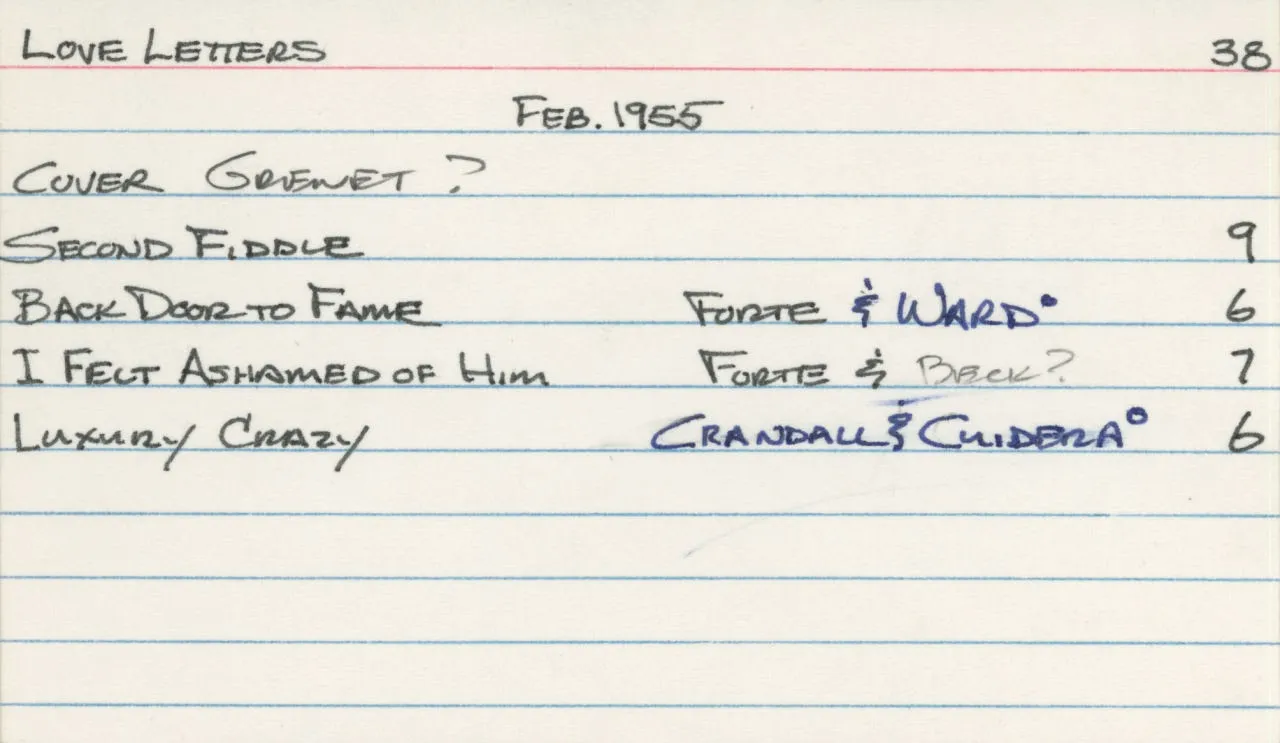 LOVE LETTERS 38
FEB. 1955
COVER GRENET ?
SECOND FIDDLE 9
BACK DOOR TO FAME FORTE & WARD° 6
I FELT ASHAMED OF HIM FORTE & BECK? 7
LUXURY CRAZY CRANDALL & CUIDERA° 6